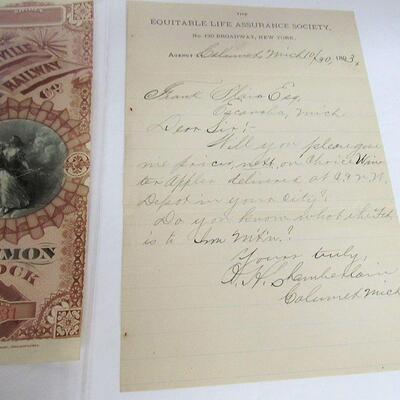 VILLE
RAILWAY
CO
MMON
OCK
31
THE
EQUITABLE LIFE ASSURANCE SOCIETY,
No. 120 BROADWAY, NEW YORK.
AGENCY Calumet, Mich 10/30 1893.
Frank Esq
Escanaba, Mich.
Dear Sir:-
Will you please give
me prices, next, on Choice Win
ter Apples delivered at C & N.W.
Depot in your city?
Do you know what the
is to Mt'n?
Yours truly,
H. H. Chamberlain
Calumet Mich